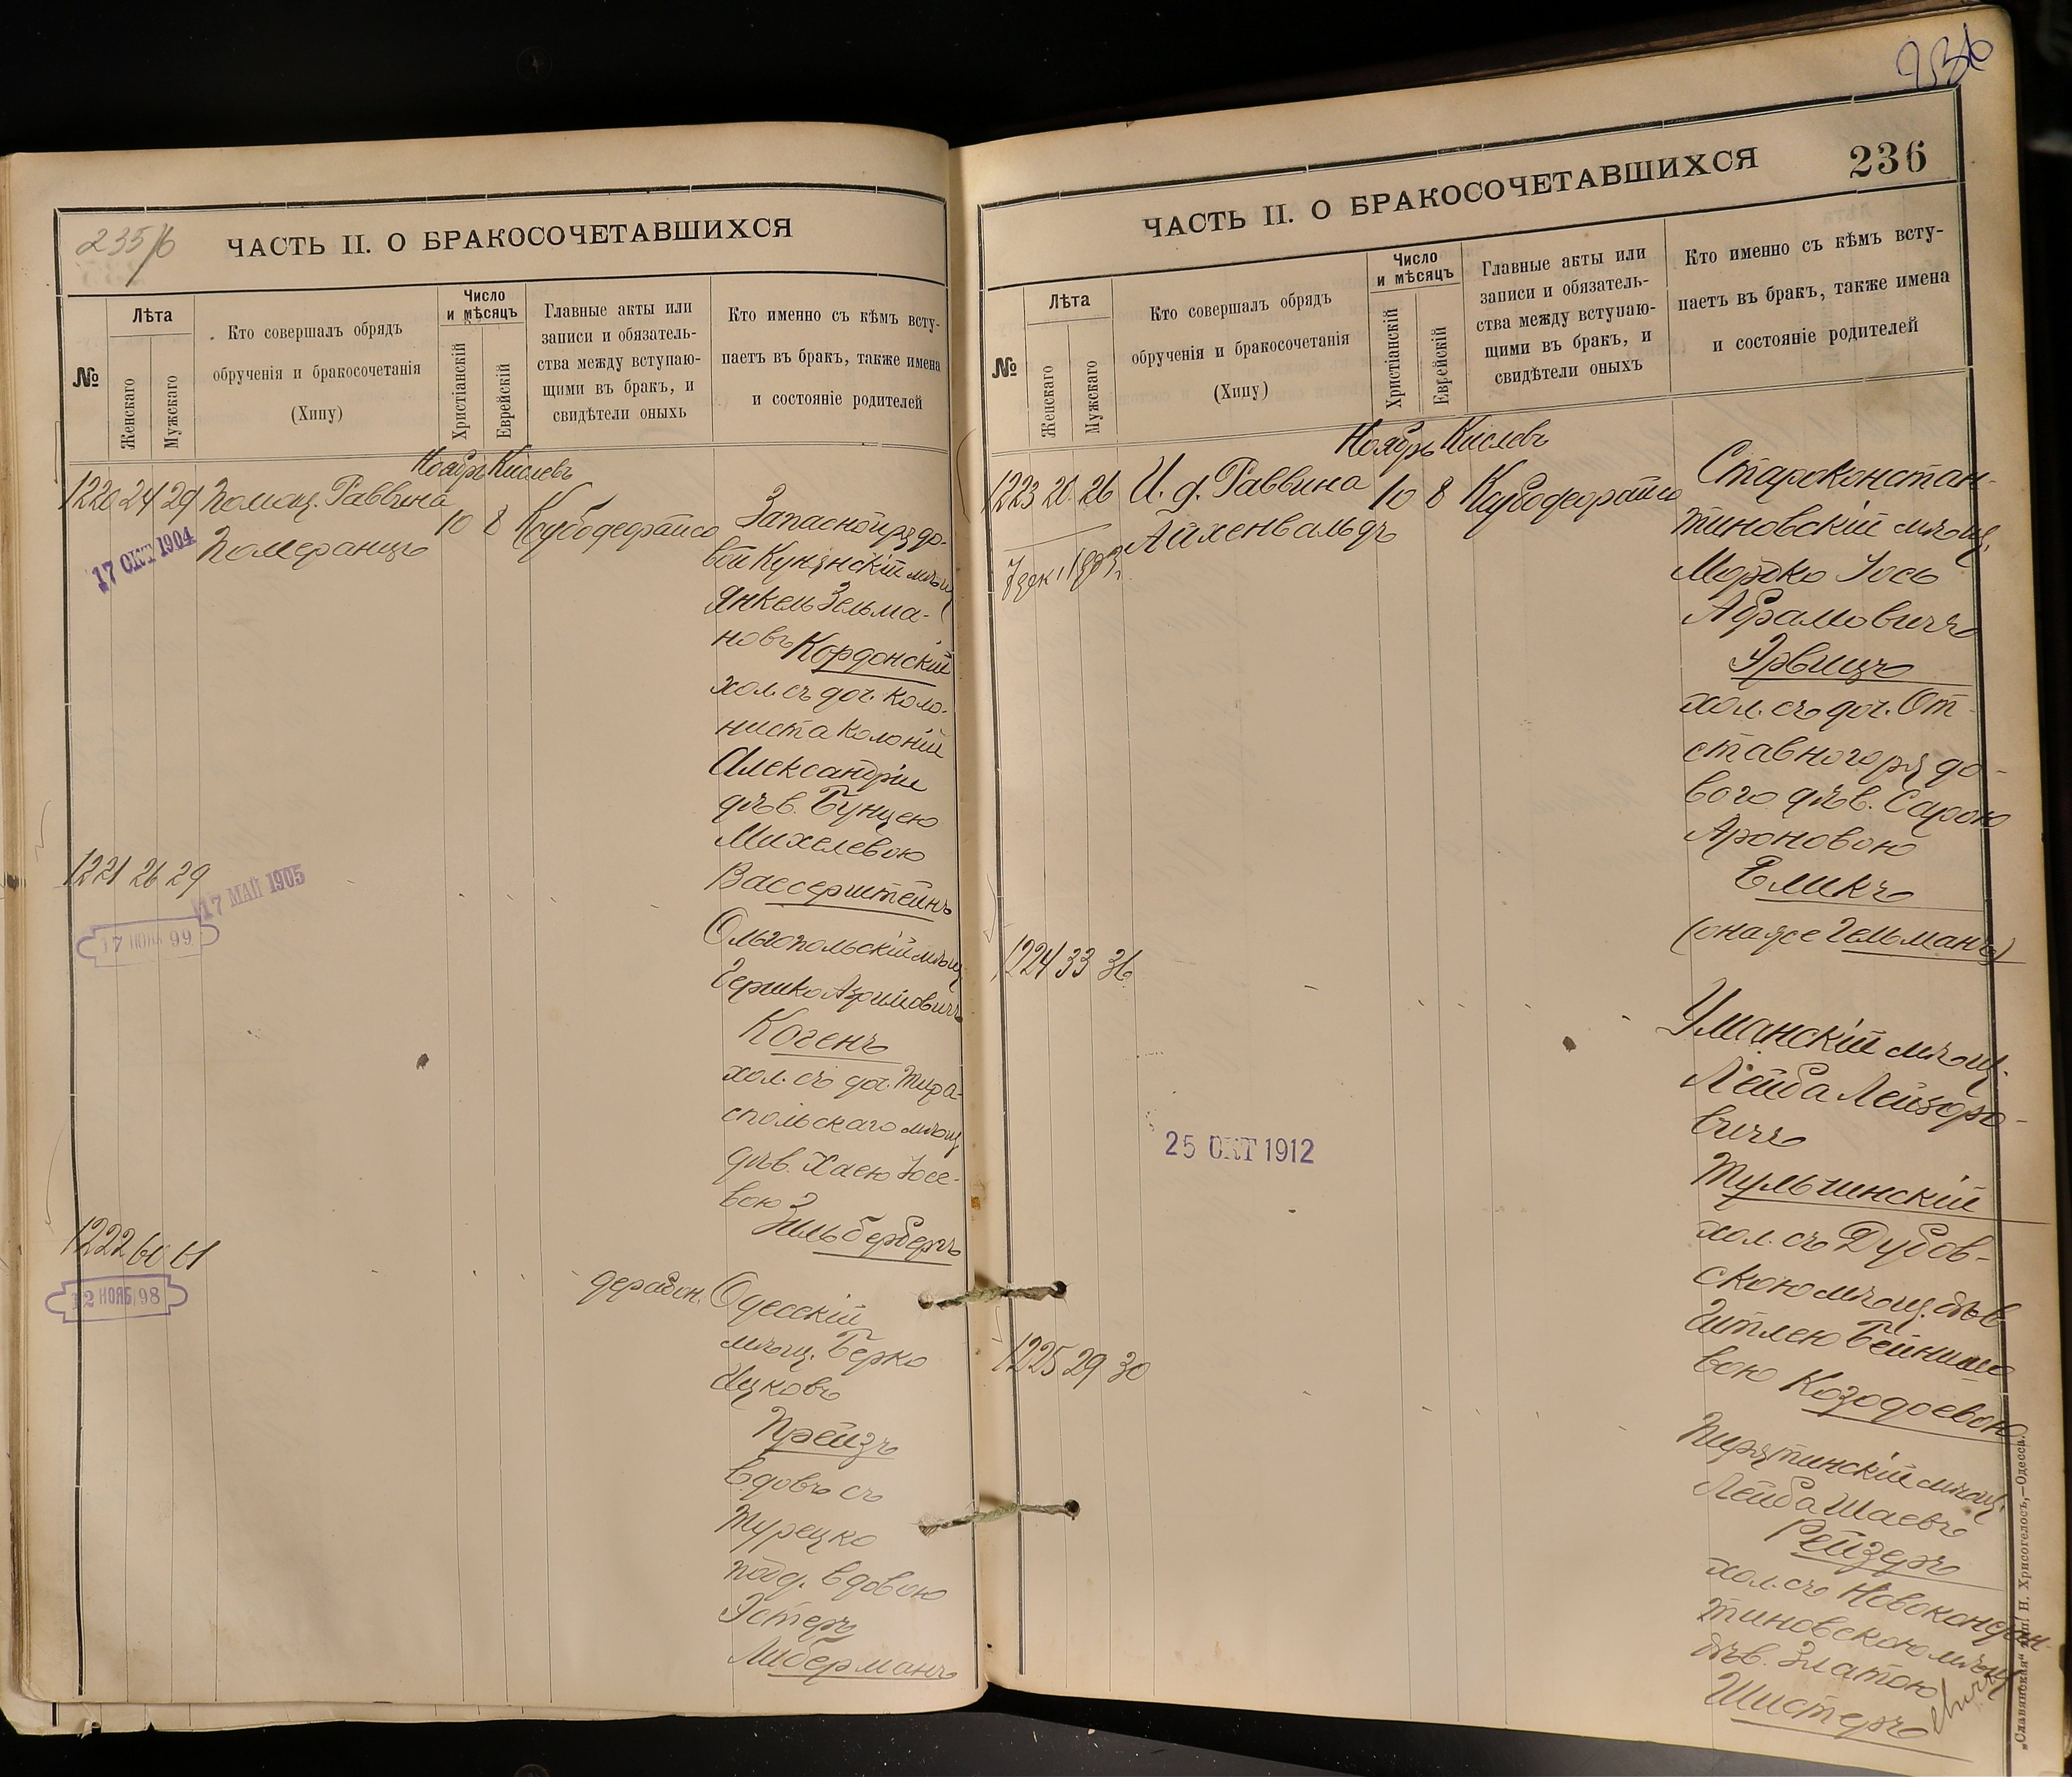 235/6
ЧАСТЬ II. О БРАКОСОЧЕТАВШИХСЯ
№
Лѣта
Женскаго
Мужскаго
Кто совершалъ обрядъ
обрученія и бракосочетанія
(Хипу)
Число
и мѣсяцъ
Христіанскій
Еврейскій
Главные акты или
записи и обязатель-
ства между вступаю-
щими въ бракъ, и
свидѣтели оныхъ
Кто именно съ кѣмъ всту-
паетъ въ бракъ, также имена
и состояніе родителей
Ноябрь Кислевъ
1220 24 29 Помощ. Раввина
Померанцъ
10 8
17 ОКТ 1904
Запасной рядо-
вой мѣщ
Янкель Зельма-
новъ Кордонскій
хол. съ доч. коло-
ниста колоніи
Александріи
дѣв. Бунцею
Михелевою
Вассерштейнъ
1221 26 29
17 МАЙ 1905
17 99
Ольгопольскій мѣщ
Гершко
Когенъ
хол. съ доч. Тира-
спольскаго мѣщ
дѣв. Хаею Іосе-
вою
Зильбербергъ
1222 60 61
12 НОЯБ 98
Одесскій
мѣщ. Берко
Ицковъ
Прейзъ
вдовъ съ
Турецко
подд. вдовою
Эстеръ
Либерманъ
236
236
ЧАСТЬ II. О БРАКОСОЧЕТАВШИХСЯ
№
Лѣта
Женскаго
Мужскаго
Кто совершалъ обрядъ
обрученія и бракосочетанія
(Хипу)
Число
и мѣсяцъ
Христіанскій
Еврейскій
Главные акты или
записи и обязатель-
ства между вступаю-
щими въ бракъ, и
свидѣтели оныхъ
Кто именно съ кѣмъ всту-
паетъ въ бракъ, также имена
и состояніе родителей
Ноябрь Кислевъ
1223 20 26 И. д. Раввина
Айхенвальдъ
10 8
7 дек.
Староконстан-
тиновскій мѣщ.
Мордко Іось
Абрамовичъ
Эрвицъ
хол. съ доч. От-
ставного рядо-
вого дѣв. Сарою
Ароновою
Еликъ
(она же Гельманъ)
1224 33 36
25 ОКТ 1912
Уманскій мѣщ.
Лейба Лейзоро-
вичъ
Тульчинскій
хол. съ Дубов-
скою мѣщ. дѣв
Гитлею
вою Козодоевою
1225 29 30
Пирятинскій мѣщ.
Лейба Шаевъ
Рейзеръ
хол. съ
тиновскою мѣщ
дѣв. Златою
Шистеръ
„Славянская“ тип. Н. Хрисогелосъ,—Одесса.